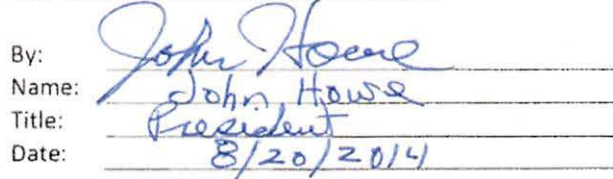 By: John Howe
Name: John Howe
Title: President
Date: 8/20/2014